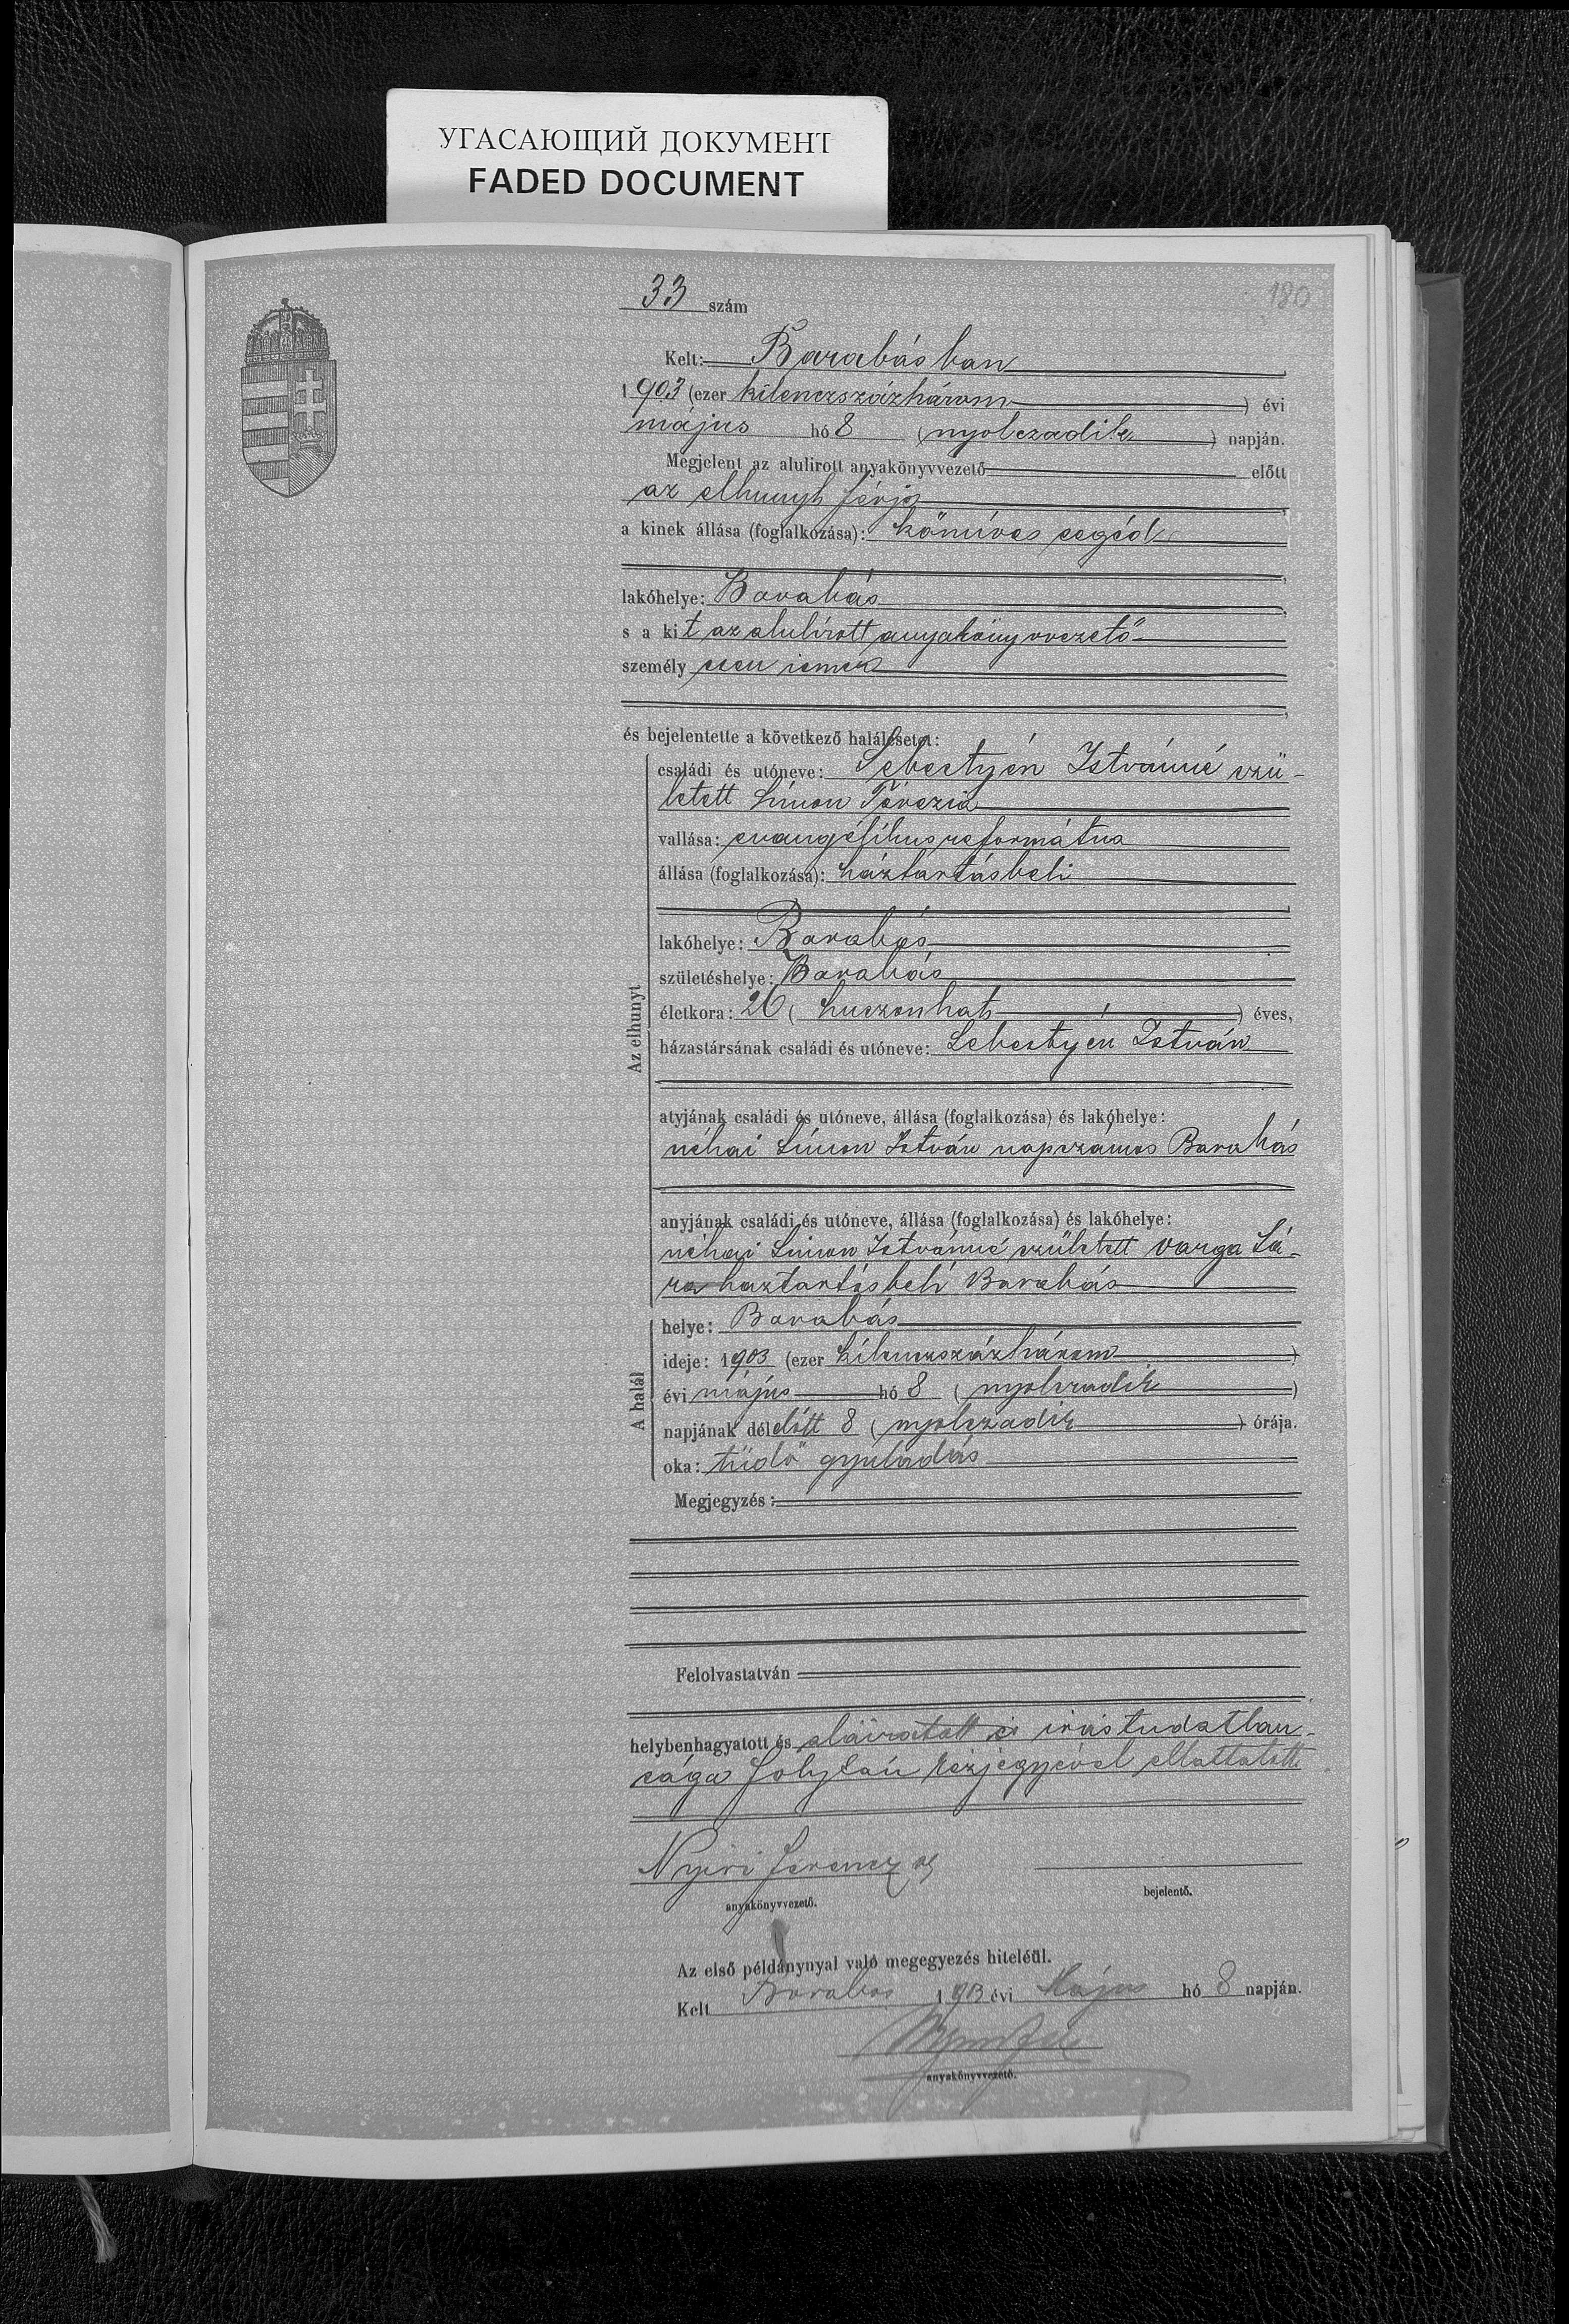 УГАСАЮЩИЙ ДОКУМЕНТ
FADED DOCUMENT
180
33 szám
Kelt: Barabásban
1903 (ezer kilenczszázhárom) évi
május hó 8 (nyolczadik) napján.
Megjelent az alulirott anyakönyvvezető előtt
az elhunyt férje
a kinek állása (foglalkozása): kőmíves segéd
lakóhelye: Barabás
s a kit az alulírott anyakönyvvezető
személyesen ismer
és bejelentette a következő halálesetet:
Az elhunyt
családi és utóneve: Sebestyén Istvánné szü-
letett Simon Terézia
vallása: evangélikus református
állása (foglalkozása): háztartásbeli
lakóhelye: Barabás
születéshelye: Barabás
életkora: 26 (huszonhat) éves,
házastársának családi és utóneve: Sebestyén István
atyjának családi és utóneve, állása (foglalkozása) és lakóhelye:
néhai Simon István napszámos Barabás
anyjának családi és utóneve, állása (foglalkozása) és lakóhelye:
néhai Simon Istvánné született Varga Sá-
ra háztartásbeli Barabás
A halál
helye: Barabás
ideje: 1903 (ezer kilenczszázhárom)
évi május hó 8 (nyolczadik)
napjának délelőtt 8 (nyolczadik) órája.
oka: tüdő gyuladás
Megjegyzés:
Felolvastatván
helybenhagyatott és aláiratott és irástudatlan-
sága folytán kézjegyével ellattatott
Nyiri Ferencz
anyakönyvvezető.
bejelentő.
Az első példánynyal való megegyezés hiteléül.
Kelt Barabás 1903 évi Május hó 8 napján.
anyakönyvvezető.